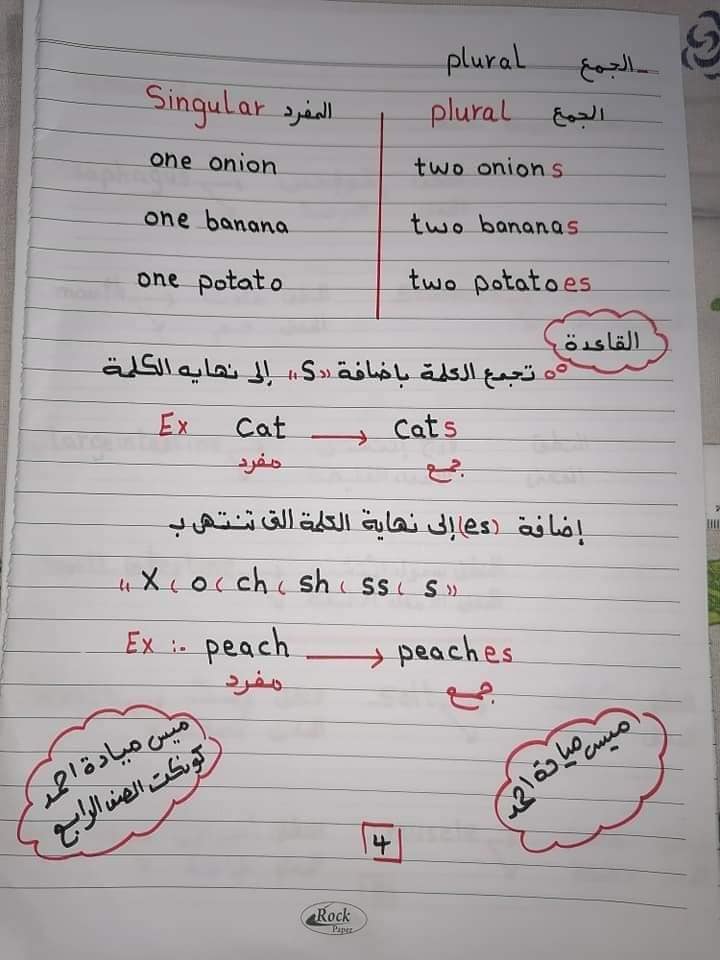 plural الجمع
Singular المفرد plural الجمع
one onion two onions
one banana two bananas
one potato two potatoes
القاعدة
تجمع الكلمة بإضافة "s" إلى نهايه الكلمة
Ex cat → cats
مفرد جمع
إضافة (es) إلى نهاية الكلمة التى تنتهى بـ
"x ، o ، ch ، sh ، ss ، s"
Ex :- peach → peaches
مفرد جمع
ميس ميادة احمد
كونكت الصف الرابع
ميس ميادة احمد
4
Rock
Paper